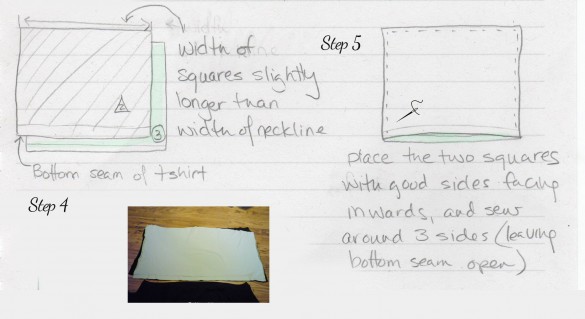 width of
squares slightly
longer than
width of neckline
3
Bottom seam of tshirt
Step 4
Step 5
place the two squares
with good sides facing
inwards, and sew
around 3 sides (leaving
bottom seam open)